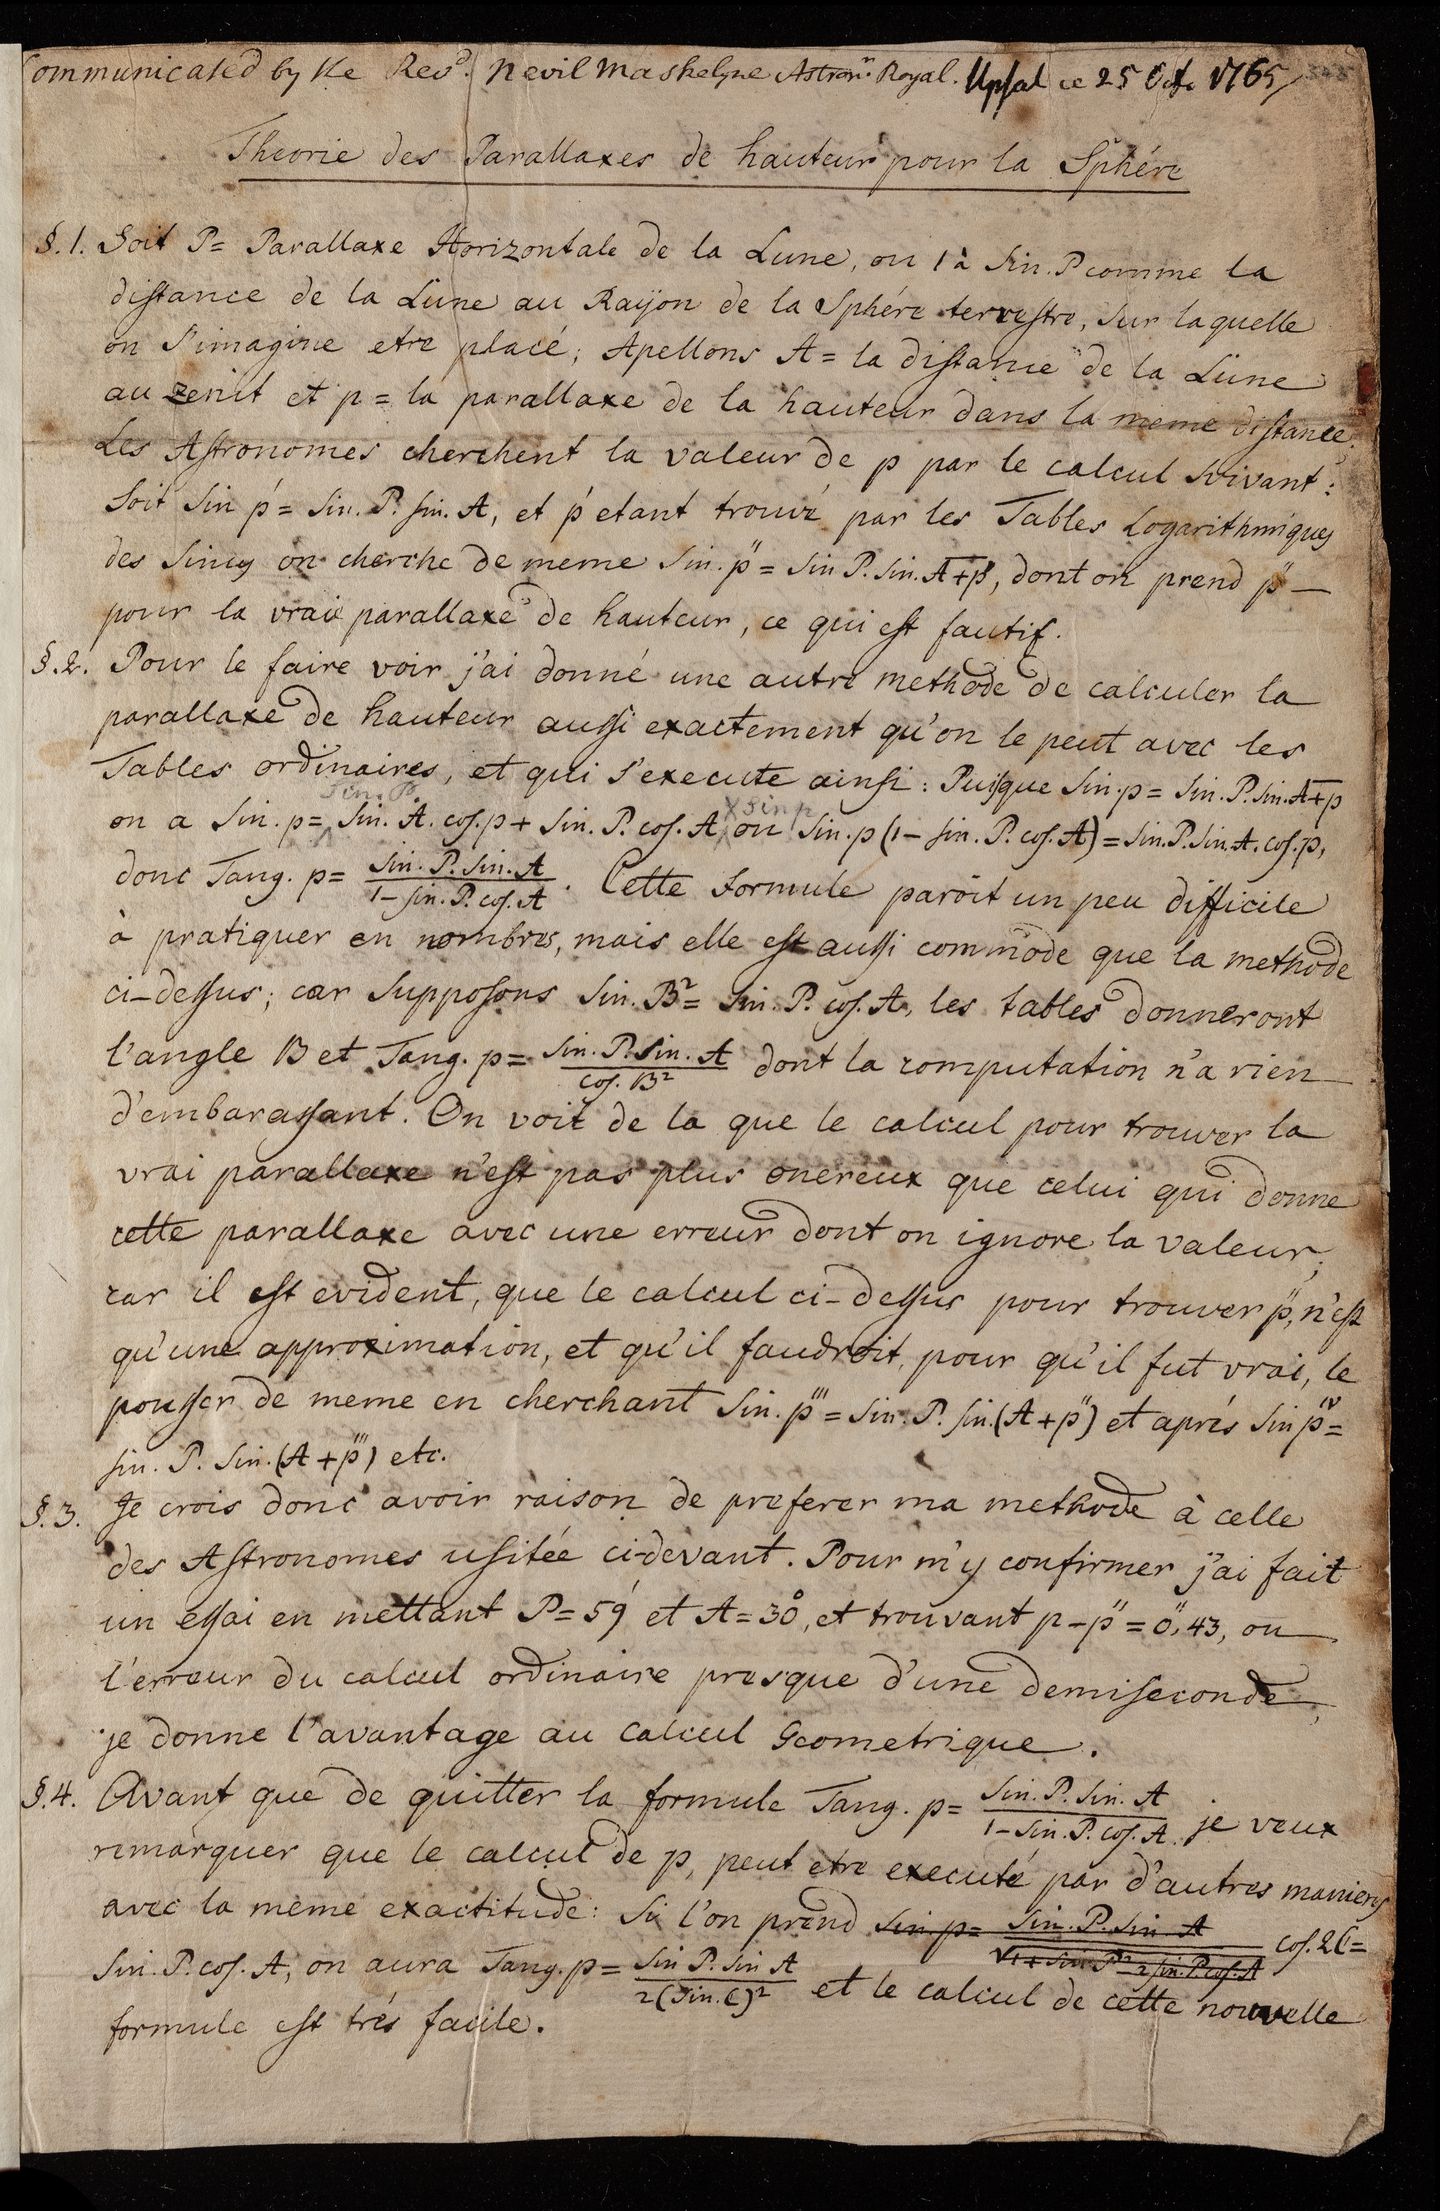 Communicated by the Revd. Nevil Maskelyne Astronr. Royal. Upsal ce 25 Oct. 1765
Theorie des Parallaxes de hauteur pour la Sphére
§.1. Soit P = Parallaxe Horizontale de la Lune, ou 1 à Sin. P comme la
distance de la Lüne au Raÿon de la Sphére terrestre, sur laquelle
on s'imagine etre placé; Apellons A = la distance de la Lüne
au zenit et p = la parallaxe de la hauteur dans la meme distance.
Les Astronomes cherchent la valeur de p par le calcul suivant:
Soit Sin p' = Sin. P. Sin. A, et p' etant trouvé par les Tables Logarithmiques
des Sinus on cherche de meme Sin. p'' = Sin P. Sin. A+p', dont on prend p'' —
pour la vraie parallaxe de hauteur, ce qui est fautif.
§.2. Pour le faire voir j'ai donné une autre methode de calculer la
parallaxe de hauteur aussi exactement qu'on le peut avec les
Tables ordinaires, et qui s'execute ainsi: Puisque Sin. p = Sin. P. Sin. A+p
Sin. P × Sin p
on a Sin. p = Sin. A. cos. p + Sin. P. cos. A ou Sin. p (1 – Sin. P. cos. A) = Sin. P. Sin. A. cos. p,
donc Tang. p = Sin. P. Sin. A / 1 – Sin. P. cos. A. Cette formule paroit un peu difficile
à pratiquer en nombres, mais elle est aussi commode que la methode
ci-dessus; car supposons Sin. B² = Sin. P. cos. A, les tables donneront
l'angle B et Tang. p = Sin. P. Sin. A / cos. B² dont la computation n'a rien
d'embarassant. On voit de la que le calcul pour trouver la
vrai parallaxe n'est pas plus onereux que celui qui donne
cette parallaxe avec une erreur dont on ignore la valeur;
car il est evident, que le calcul ci-dessus pour trouver p'', n'est
qu'une approximation, et qu'il faudroit, pour qu'il fut vrai, le
pousser de meme en cherchant Sin. p''' = Sin. P. Sin. (A + p'') et aprés Sin p'''' =
Sin. P. Sin. (A + p''') etc.
§.3. Je crois donc avoir raison de preferer ma methode à celle
des Astronomes usitée ci-devant. Pour m'y confirmer j'ai fait
un essai en mettant P = 59' et A = 30°, et trouvant p – p'' = 0'',43, ou
l'erreur du calcul ordinaire presque d'une demiseconde,
je donne l'avantage au calcul Geometrique.
§.4. Avant que de quitter la formule Tang. p = Sin. P. Sin. A / 1 – Sin. P. cos. A je veux
remarquer que le calcul de p, peut etre executé par d'autres manieres
avec la meme exactitude: Si l'on prend Sin p = Sin. P. Sin A / √1 + Sin P² – 2 Sin. P. cos. A cos. 2C =
Sin. P. cos. A, on aura Tang. p = Sin P. Sin A / 2 (Sin. C)² et le calcul de cette nouvelle
formule est trés facile.